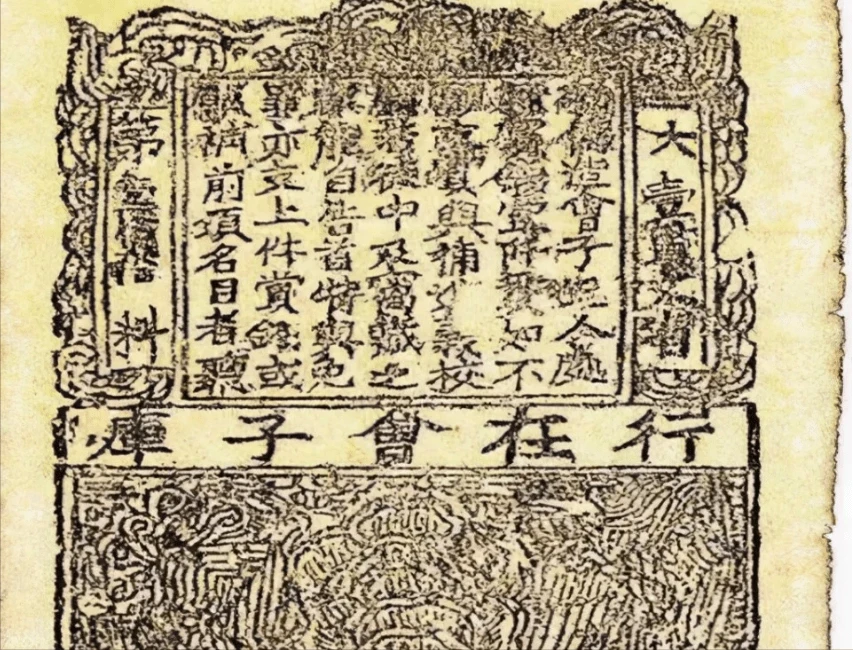 大壹貫文省
偽造會子犯人處
賞錢壹阡貫如不
支賞與補進義校
若徒中及窩藏之
能自告首特與免
罪亦支上件賞錢或
願補前項名目者聽
第壹百拾料
行在會子庫